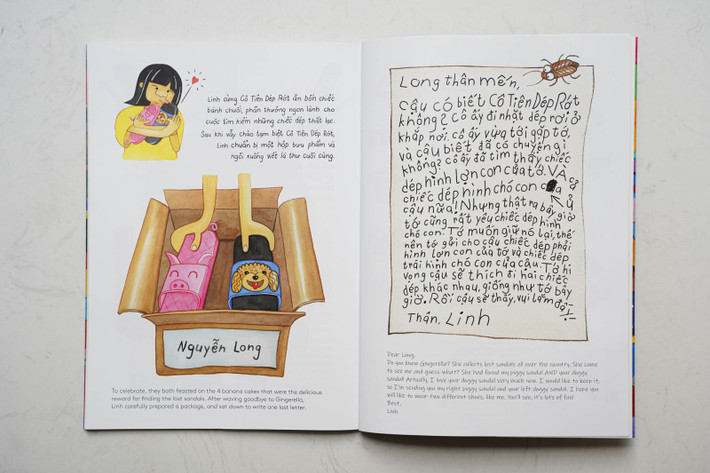 Linh cùng Cô Tiên Dép Rớt ăn bốn chiếc
bánh chuối, phần thưởng ngon lành cho
cuộc tìm kiếm những chiếc dép thất lạc.
Sau khi vẫy chào tạm biệt Cô Tiên Dép Rớt,
Linh chuẩn bị một hộp bưu phẩm và
ngồi xuống viết lá thư cuối cùng.
Nguyễn Long
To celebrate, they both feasted on the 4 banana cakes that were the delicious
reward for finding the lost sandals. After waving goodbye to Gingerella,
Linh carefully prepared a package, and sat down to write one last letter.
Long thân mến,
Cậu có biết Cô Tiên Dép Rớt
không? Cô ấy đi nhặt dép rơi ở
khắp nơi. Cô ấy vừa tới gặp tớ,
và cậu biết đã có chuyện gì
không? Cô ấy đã tìm thấy chiếc
dép hình lợn con của tớ. VÀ cả
chiếc dép hình chó con của
cậu nữa! Nhưng thật ra bây giờ
tớ cũng rất yêu chiếc dép hình
chó con. Tớ muốn giữ nó lại, thế
nên tớ gửi cho cậu chiếc dép phải
hình lợn con của tớ và chiếc dép
trái hình chó con của cậu. Tớ hi
vọng cậu sẽ thích đi hai chiếc
dép khác nhau, giống như tớ bây
giờ. Rồi cậu sẽ thấy, vui lắm
Thân, Linh
Dear Long,
Do you know Gingerella? She collects lost sandals all over the country. She came
to see me and guess what? She had found my piggy sandal AND your doggy
sandal! Actually, I love your doggy sandal very much now. I would like to keep it,
so I'm sending you my right piggy sandal and your left doggy sandal. I hope you
will like to wear two different shoes, like me. You'll see, it's lots of fun!
Best,
Linh